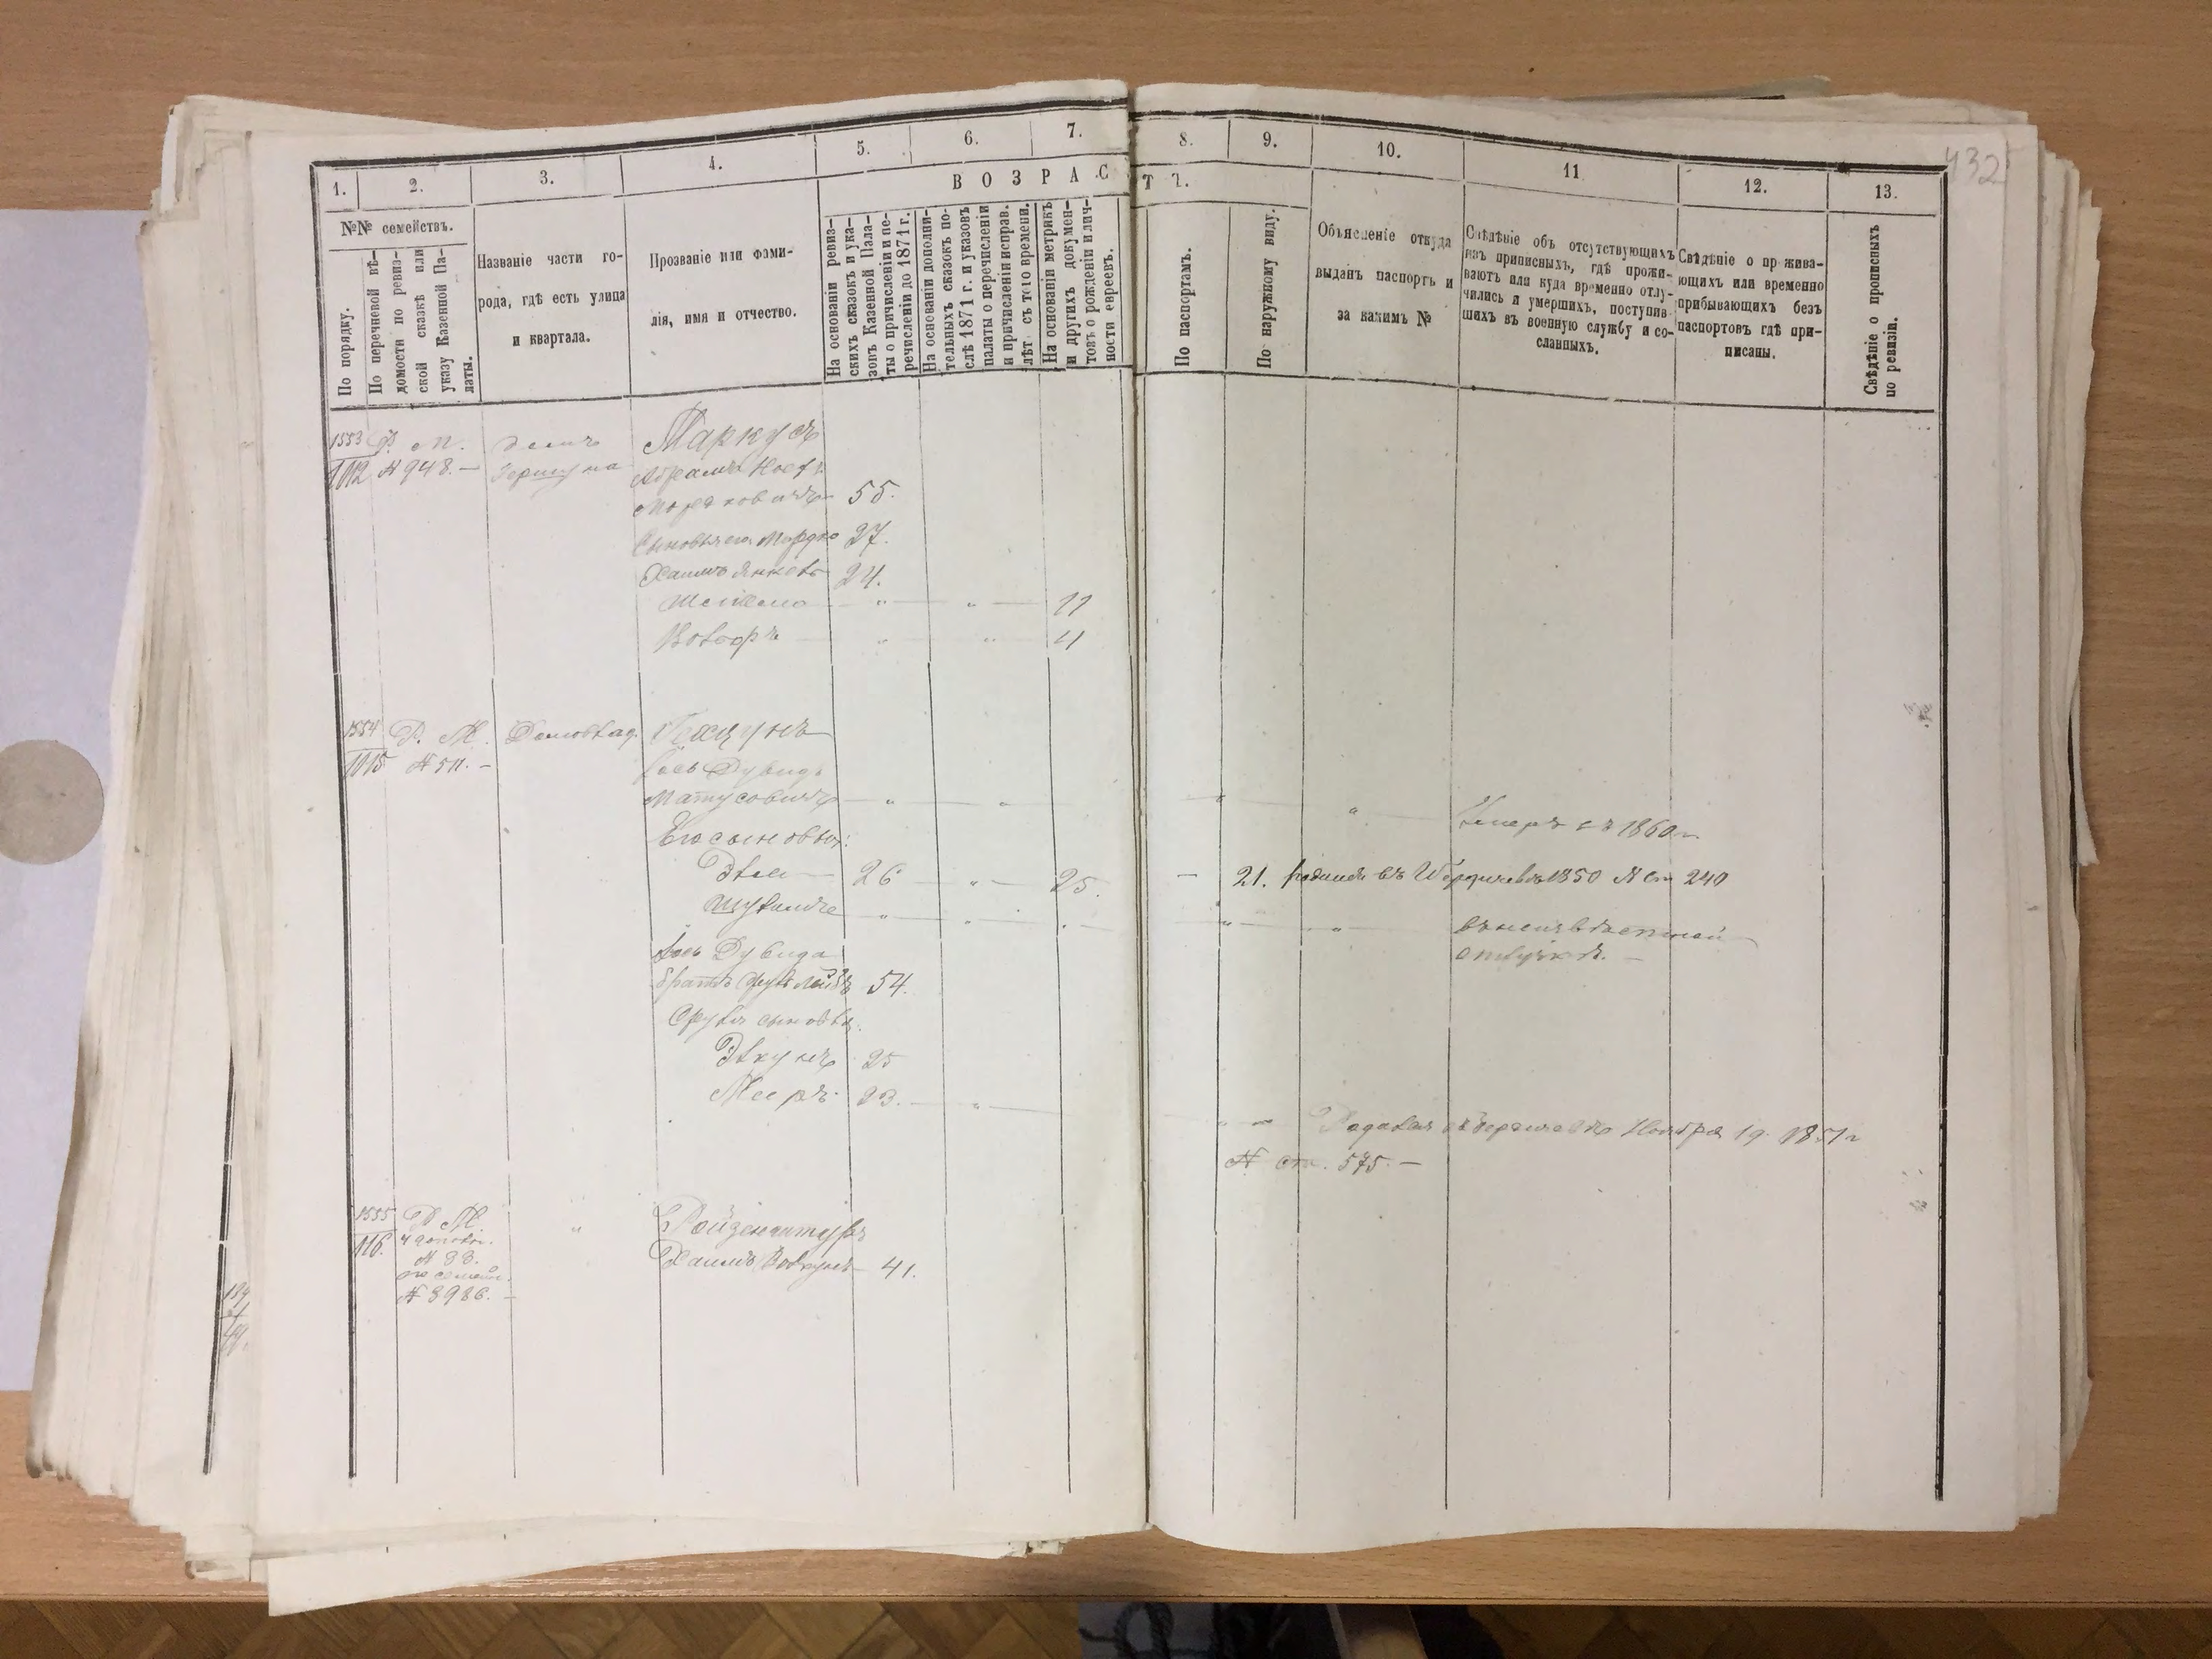 432
1.
2.
3.
4.
5.
6.
7.
8.
9.
10.
11
12.
13.
ВОЗРАСТЪ.
№№ семействъ.
По порядку.
По перечневой вѣ-
домости по ревиз-
ской сказкѣ или
указу Казенной Па-
латы.
Названіе части го-
рода, гдѣ есть улица
и квартала.
Прозваніе или фами-
лія, имя и отчество.
На основаніи ревиз-
скихъ сказокъ и ука-
зовъ Казенной Пала-
ты о причисленіи и пе-
речисленіи до 1871 г.
На основаніи дополни-
тельныхъ сказокъ по-
слѣ 1871 г. и указовъ
палаты о перечисленіи
и причисленіи исправ.
лѣт съ того времени.
На основаніи метрикъ
и другихъ докумен-
товъ о рожденіи и лич-
ности евреевъ.
По паспортамъ.
По наружному виду.
Объясненіе откуда
выданъ паспортъ и
за какимъ №
Свѣдѣніе объ отсутствующихъ
изъ приписныхъ, гдѣ прожи-
ваютъ или куда временно отлу-
чились и умершихъ, поступив
шихъ въ военную службу и со-
сланныхъ.
Свѣдѣніе о прожива-
ющихъ или временно
прибывающихъ безъ
паспортовъ гдѣ при-
писаны.
Свѣдѣніе о прописныхъ
по ревизіи.
1553 Р. М. домъ Маркусъ
1112 № 948. — Гершуна Абрамъ
Мордковичъ 55.
Сыновья его Мордко 27.
Хаимъ Янкель 24.
" " 11
" " 4
1554 Р. М. Домовлад.
1115 № 511. —
Іось Дувидъ
Матусовичъ " " " " Умеръ въ 1860 г
Его сыновья:
26 " 25. — 21. родился въ Бердичевѣ 1850 № ст 240
" " " " " въ неизвѣстной
отлучкѣ. —
Іось Дувида
братъ Сруль Лейбъ 54.
Сруля сыновья:
25
Мееръ 23. " " Бердичевѣ Ноября 19. 1851 г
№ ст. 575. —
1555 Р. М. " Ройзенштурх
1116. № 33.
Хаимъ 41.
по семейн.
№ 3986. —